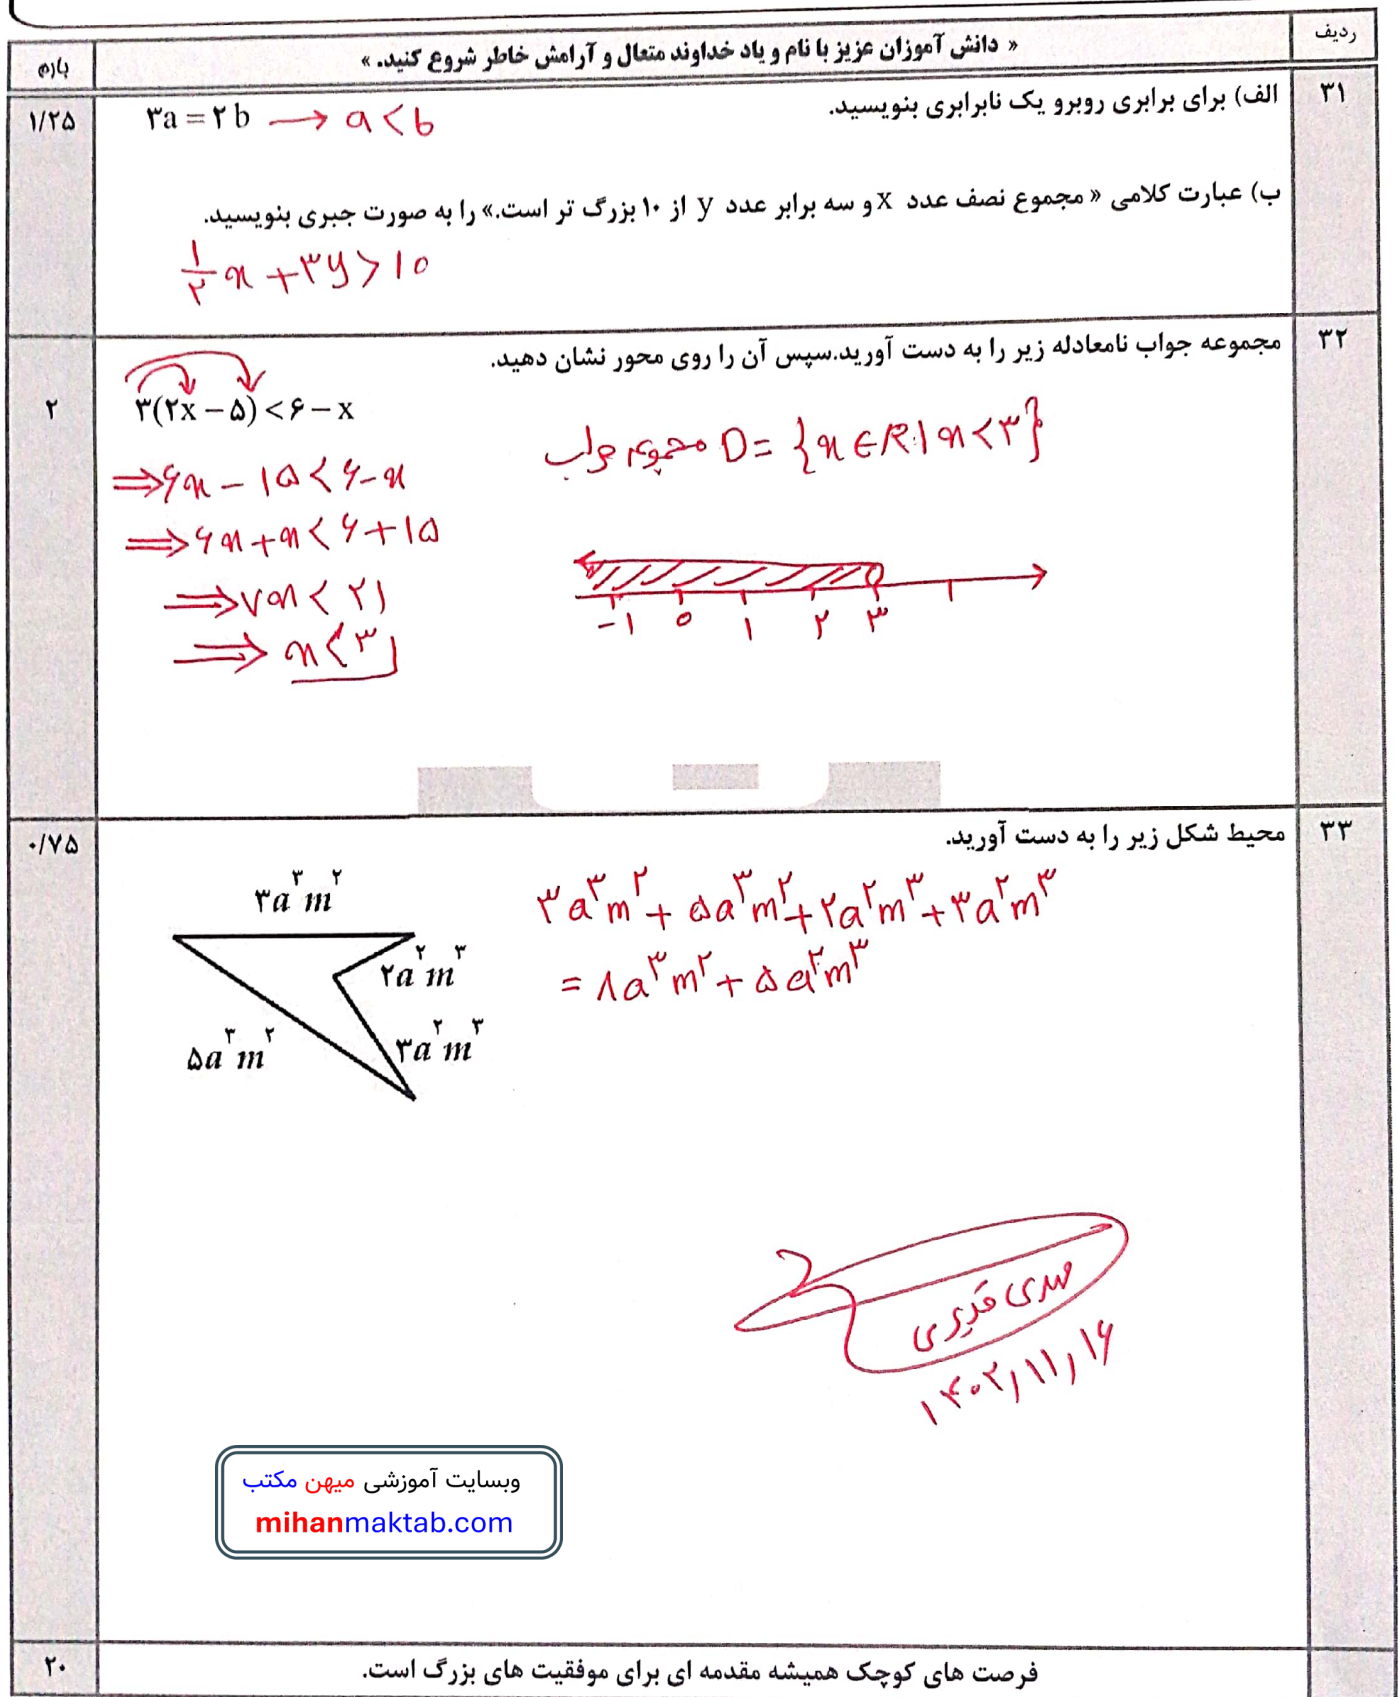 ردیف
« دانش آموزان عزیز با نام و یاد خداوند متعال و آرامش خاطر شروع کنید. »
بارم
۳۱
الف) برای برابری روبرو یک نابرابری بنویسید.
۳a = ۲b → a < b
۱/۲۵
ب) عبارت کلامی « مجموع نصف عدد x و سه برابر عدد y از ۱۰ بزرگ تر است.» را به صورت جبری بنویسید.
۱/۲ x + ۳y > ۱۰
۳۲
مجموعه جواب نامعادله زیر را به دست آورید.سپس آن را روی محور نشان دهید.
۲
۳(۲x – ۵) < ۶ – x
⇒ ۶x – ۱۵ < ۶ – x
⇒ ۶x + x < ۶ + ۱۵
⇒ ۷x < ۲۱
⇒ x < ۳
مجموعه جواب D = {x ∈ R | x < ۳}
–۱ ۰ ۱ ۲ ۳
۳۳
محیط شکل زیر را به دست آورید.
۰/۷۵
۳a³m²
۲a²m³
۵a³m²
۳a²m³
۳a³m² + ۵a³m² + ۲a²m³ + ۳a²m³
= ۸a³m² + ۵a²m³
مهدی قدیری
۱۴۰۲/۱۱/۱۶
وبسایت آموزشی میهن مکتب
mihanmaktab.com
فرصت های کوچک همیشه مقدمه ای برای موفقیت های بزرگ است.
۲۰